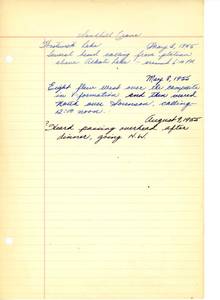 Sandhill Crane
Threemile Lake May 2, 1955
Several heard calling from position
above Alkali Lake - around 5:10 P.M.
May 8, 1955
Eight flew west over the campsite
in V formation and then veered
North over Sorenson, calling-
12:10 noon.
August 9, 1955
? Heard passing overhead after
dinner, going N.W.